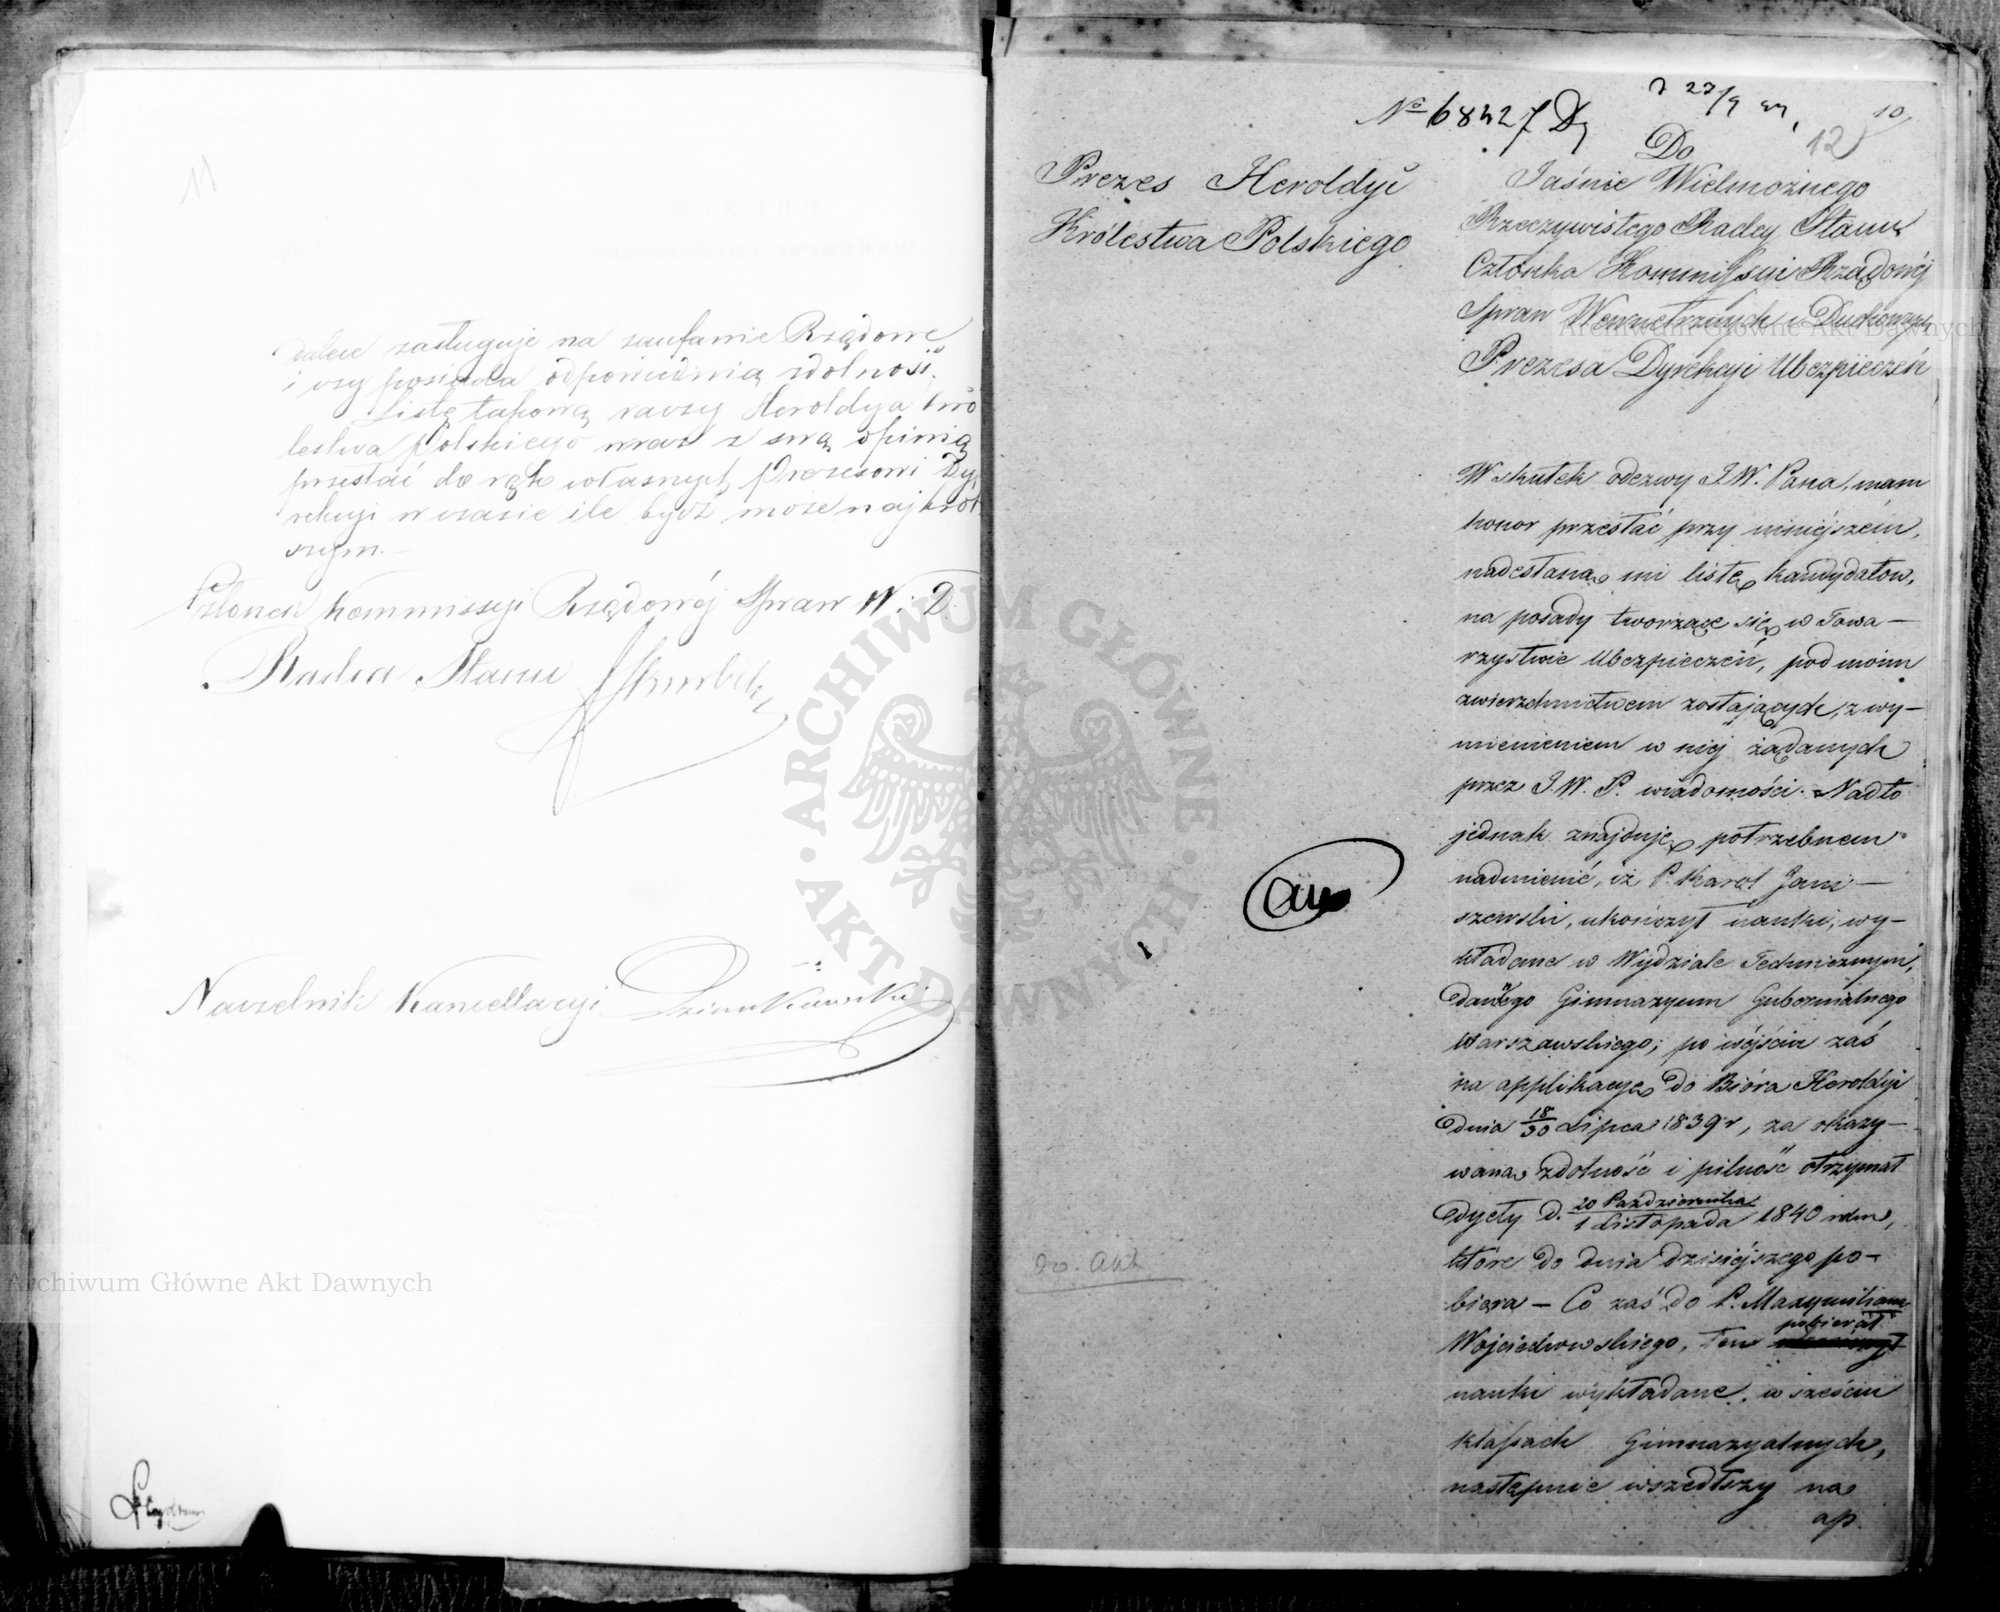 11
dalece zasługuje na zaufanie Rządowe
i czy posiada odpowiednią zdolność.
Listę takową raczy Heroldya Kró
lestwa Polskiego wraz z swą opinią
przesłać do rąk własnych Prezesowi Dy
rekcyi w czasie ile bydź może najkrót
szym.
Członek Kommissyi Rządowéj Spraw W. i D.
Radca Stanu
Naczelnik Kancellaryi
Archiwum Główne Akt Dawnych
ARCHIWUM GŁÓWNE · AKT DAWNYCH ·
No 68427
10
12
Prezes Heroldyi
Królestwa Polskiego
Do
Jaśnie Wielmożnego
Rzeczywistego Radcy Stanu
Członka Kommissyi Rządowéj
Spraw Wewnętrznych i Duchownych
Prezesa Dyrekcyi Ubezpieczeń
Archiwum Główne Akt Dawnych
W skutek odezwy J.W. Pana, mam
honor przesłać przy niniejszém,
nadesłaną mi listę kandydatów,
na posady tworzące się w Towa-
rzystwie Ubezpieczeń, pod moim
zwierzchnictwem zostających, z wy-
mienieniem w niéj żądanych
przez J.W.P. wiadomości. Nadto
jednak znajduję potrzebnem
nadmienić, iż P. Karol Jani-
szewski, ukończył nauki, wy-
kładane w Wydziale Technicznym,
dawnego Gimnazyum Gubernialnego
Warszawskiego; po wejściu zaś
na applikacyę do Bióra Heroldyi
dnia 18/30 Lipca 1839 r, za okazy-
waną zdolność i pilność otrzymał
dyety d. 20 Października/1 Listopada 1840 roku,
które do dnia dzisiejszego po-
biera - Co zaś do P. Maxymiliana
pobierał
Wojciechowskiego, ten
nauki wykładane w sześciu
klassach Gimnazyalnych,
następnie wszedłszy na
ap.
do. Akt